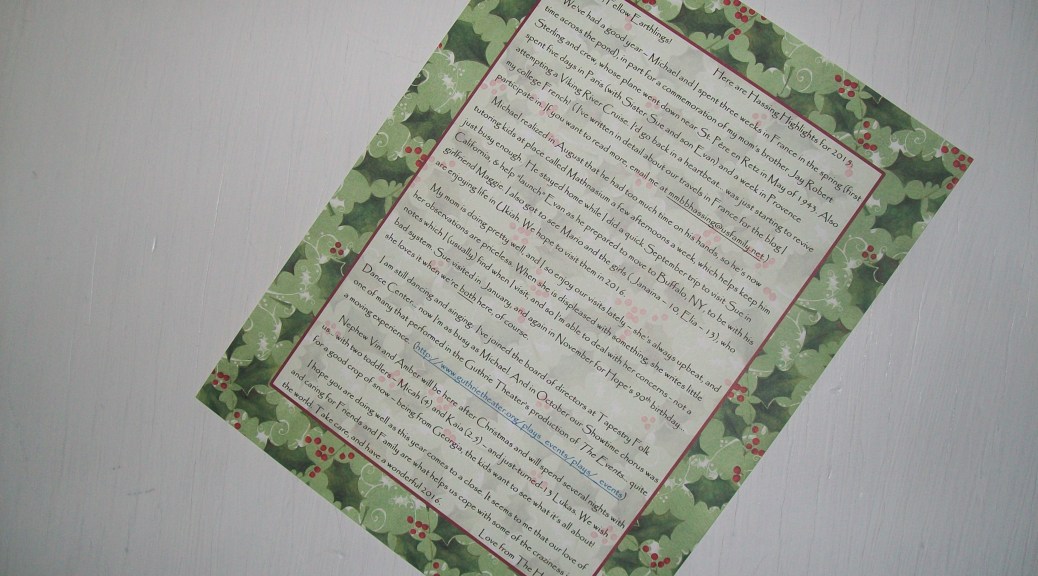 Fellow Earthlings!
Here are Hassing Highlights for 2015:
We've had a good year – Michael and I spent three weeks in France in the spring (first
time across the pond), in part for a commemoration of my mom's brother Jay Robert
Sterling and crew, whose plane went down near St. Père en Retz in May of 1943. Also
spent five days in Paris (with Sister Sue and son Evan) and a week in Provence
attempting a Viking River Cruise. I'd go back in a heartbeat... was just starting to revive
my college French! (I've written in detail about our travels in France for the blog I
participate in. If you want to read more, email me at mmbbhassing@usfamily.net.)
Michael realized in August that he had too much time on his hands, so he's now
tutoring kids at place called Mathnasium a few afternoons a week, which helps keep him
just busy enough. He stayed home while I did a quick September trip to visit Sue in
California, & help "launch" Evan as he prepared to move to Buffalo, NY, to be with his
girlfriend Maggie. I also got to see Mario and the girls (Janaina – 10, Elia – 13), who
are enjoying life in Ukiah. We hope to visit them in 2016.
My mom is doing pretty well, and I so enjoy our visits lately – she's always upbeat, and
her observations are priceless. When she is displeased with something, she writes little
notes which I (usually) find when I visit, and so I'm able to deal with her concerns – not a
bad system. Sue visited in January, and again in November for Hope's 90th birthday...
she loves it when we're both here, of course.
I am still dancing and singing. I've joined the board of directors at Tapestry Folk
Dance Center... now I'm as busy as Michael. And in October our Showtime chorus was
one of many that performed in the Guthrie Theater's production of The Events... quite
a moving experience. (http://www.guthrietheater.org/plays_events/plays/_events)
Nephew Vin and Amber will be here after Christmas and will spend several nights with
us... with two toddlers – Micah (4) and Kaia (2.5) – and just-turned-13 Lukas. We wish
for a good crop of snow – being from Georgia, the kids want to see what it's all about!
I hope you are doing well as this year comes to a close. It seems to me that our love of
and caring for Friends and Family are what helps us cope with some of the craziness
the world. Take care, and have a wonderful 2016.
Love from The